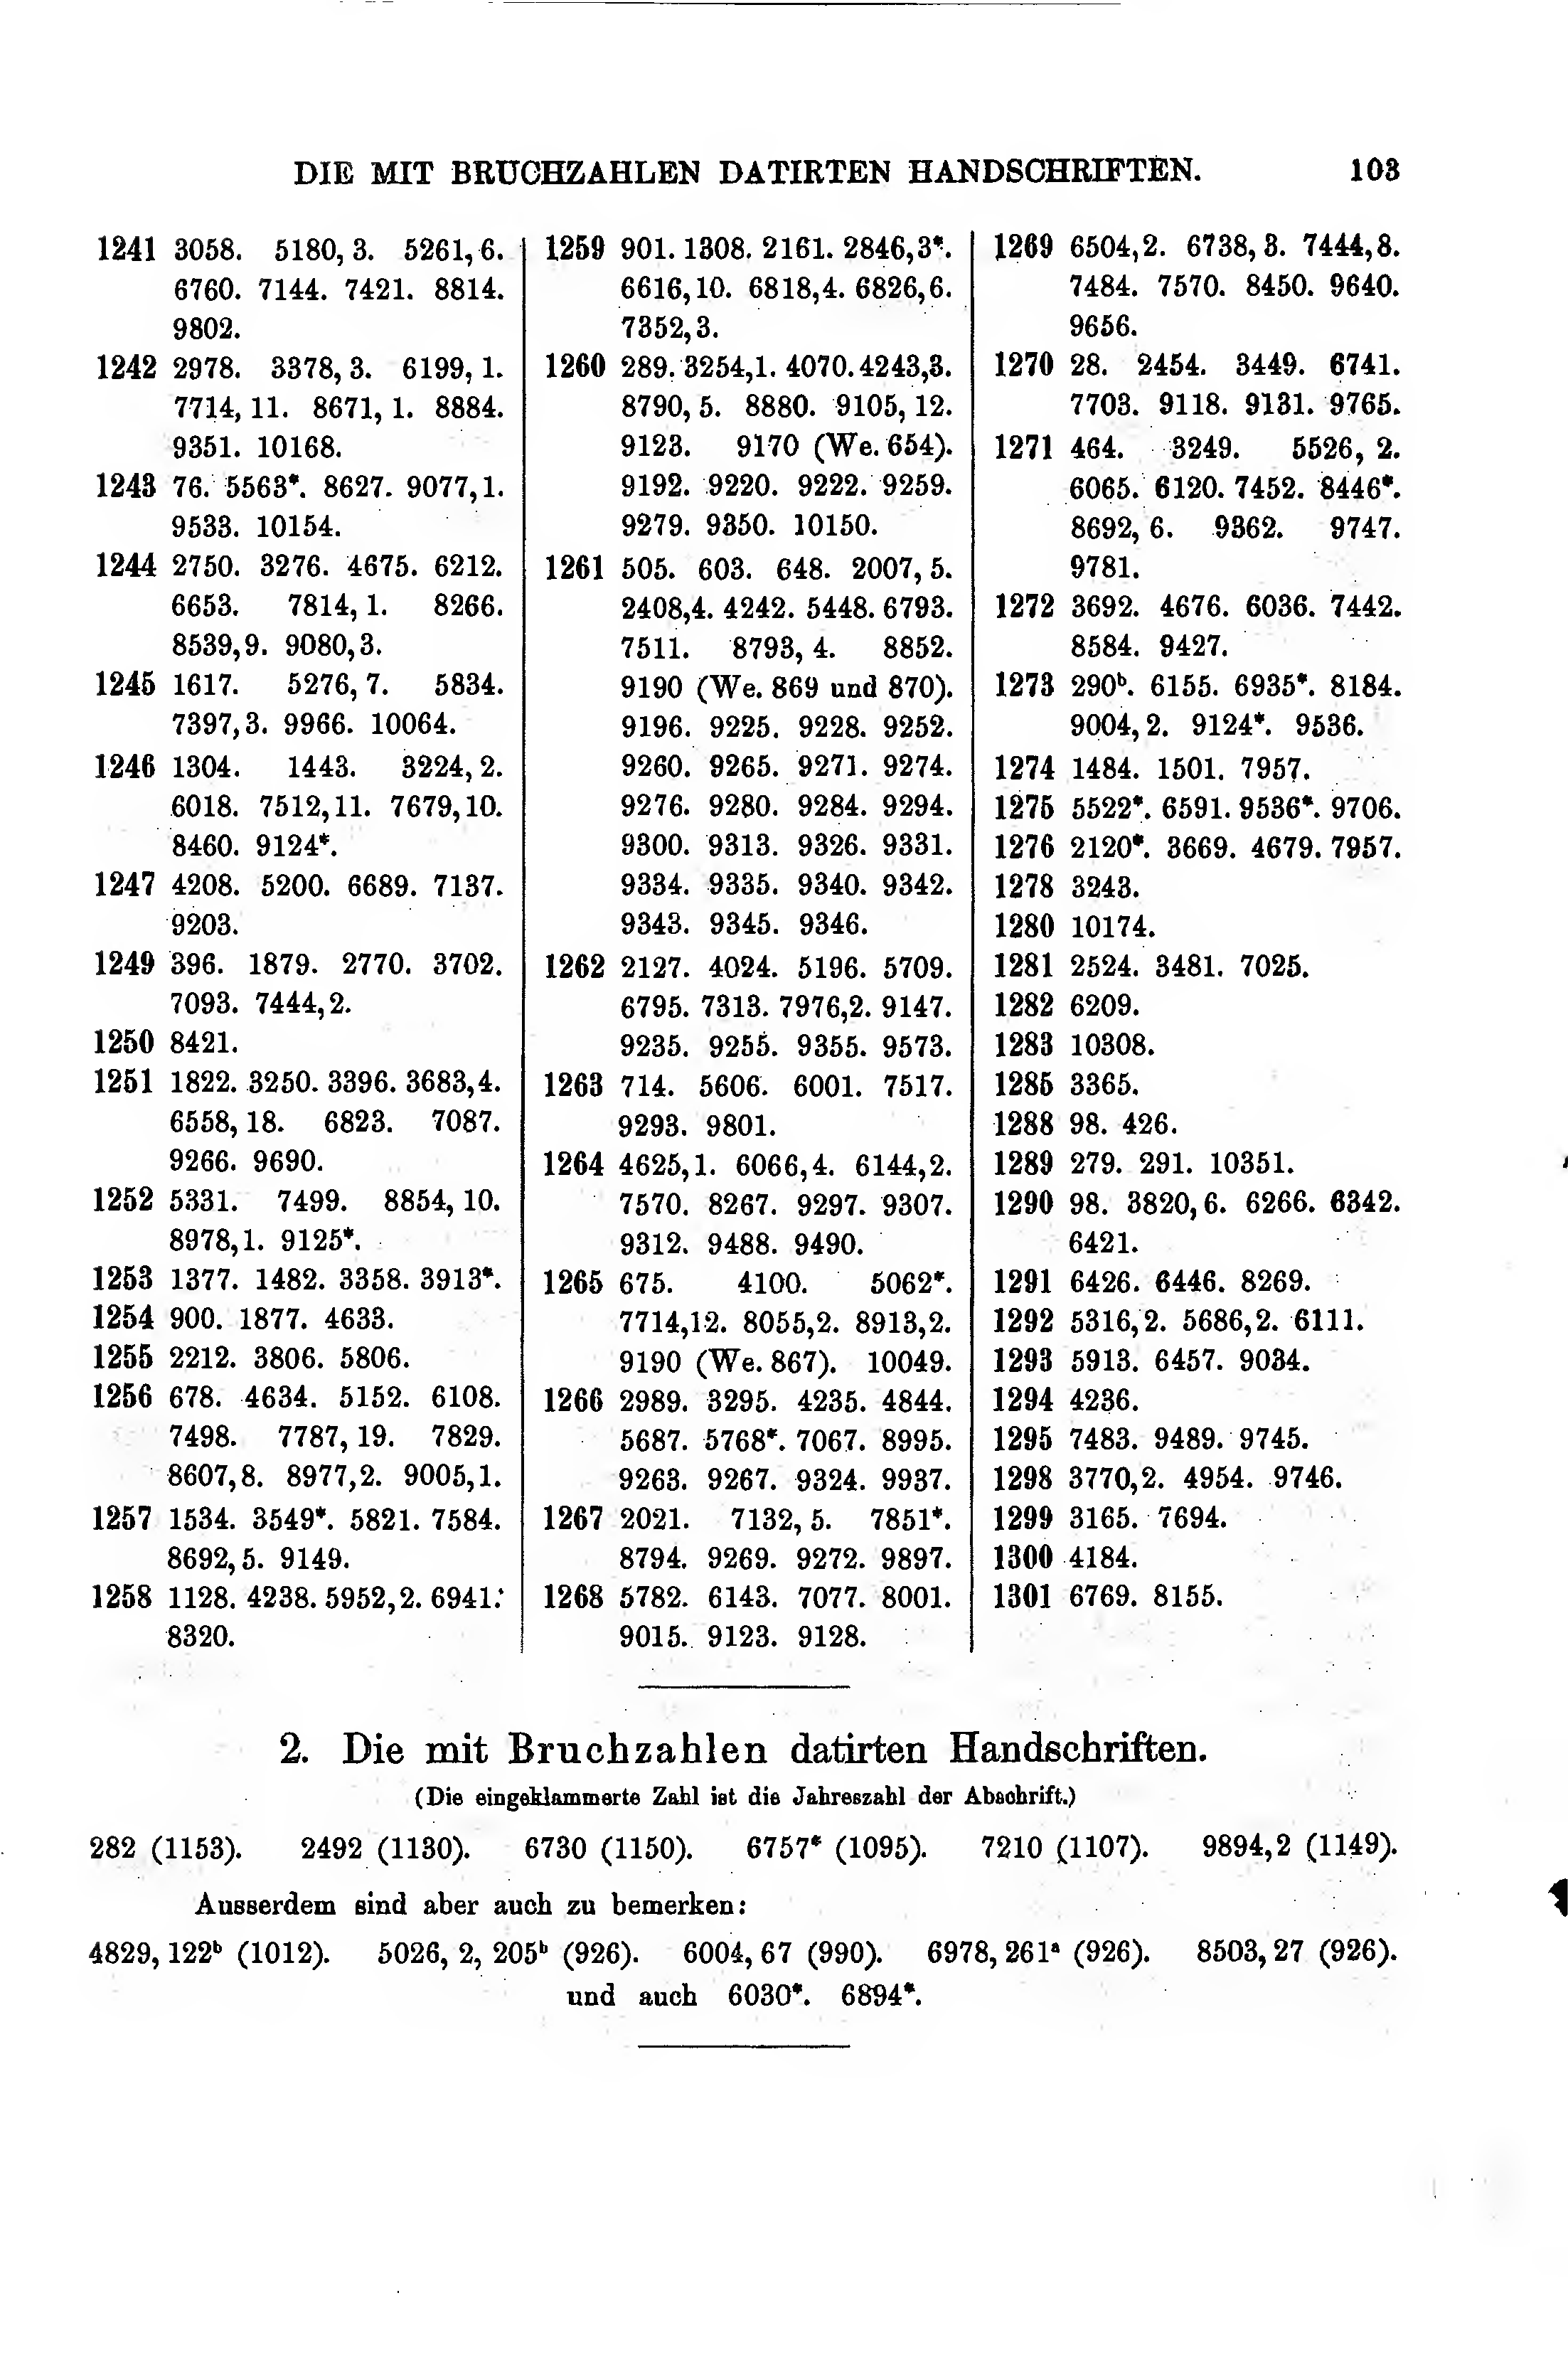 DIE MIT BRUCHZAHLEN DATIRTEN HANDSCHRIFTEN. 103
1241 3058. 5180, 3. 5261, 6.
6760. 7144. 7421. 8814.
9802.
1242 2978. 3378, 3. 6199, 1.
7714, 11. 8671, 1. 8884.
9351. 10168.
1243 76. 5563*. 8627. 9077,1.
9533. 10154.
1244 2750. 3276. 4675. 6212.
6653. 7814, 1. 8266.
8539,9. 9080,3.
1245 1617. 5276, 7. 5834.
7397,3. 9966. 10064.
1246 1304. 1443. 3224, 2.
6018. 7512,11. 7679,10.
8460. 9124*.
1247 4208. 5200. 6689. 7137.
9203.
1249 396. 1879. 2770. 3702.
7093. 7444,2.
1250 8421.
1251 1822. 3250. 3396. 3683,4.
6558, 18. 6823. 7087.
9266. 9690.
1252 5331. 7499. 8854, 10.
8978,1. 9125*.
1253 1377. 1482. 3358. 3913*.
1254 900. 1877. 4633.
1255 2212. 3806. 5806.
1256 678. 4634. 5152. 6108.
7498. 7787, 19. 7829.
8607,8. 8977,2. 9005,1.
1257 1534. 3549*. 5821. 7584.
8692,5. 9149.
1258 1128. 4238. 5952,2. 6941.
8320.
1259 901. 1308. 2161. 2846,3*.
6616,10. 6818,4. 6826,6.
7352,3.
1260 289. 3254,1. 4070. 4243,3.
8790, 5. 8880. 9105, 12.
9123. 9170 (We. 654).
9192. 9220. 9222. 9259.
9279. 9350. 10150.
1261 505. 603. 648. 2007, 5.
2408,4. 4242. 5448. 6793.
7511. 8793, 4. 8852.
9190 (We. 869 und 870).
9196. 9225. 9228. 9252.
9260. 9265. 9271. 9274.
9276. 9280. 9284. 9294.
9300. 9313. 9326. 9331.
9334. 9335. 9340. 9342.
9343. 9345. 9346.
1262 2127. 4024. 5196. 5709.
6795. 7313. 7976,2. 9147.
9235. 9255. 9355. 9573.
1263 714. 5606. 6001. 7517.
9293. 9801.
1264 4625,1. 6066,4. 6144,2.
7570. 8267. 9297. 9307.
9312. 9488. 9490.
1265 675. 4100. 5062*.
7714,12. 8055,2. 8913,2.
9190 (We. 867). 10049.
1266 2989. 3295. 4235. 4844.
5687. 5768*. 7067. 8995.
9263. 9267. 9324. 9937.
1267 2021. 7132, 5. 7851*.
8794. 9269. 9272. 9897.
1268 5782. 6143. 7077. 8001.
9015. 9123. 9128.
1269 6504,2. 6738, 3. 7444,8.
7484. 7570. 8450. 9640.
9656.
1270 28. 2454. 3449. 6741.
7703. 9118. 9131. 9765.
1271 464. 3249. 5526, 2.
6065. 6120. 7452. 8446*.
8692, 6. 9362. 9747.
9781.
1272 3692. 4676. 6036. 7442.
8584. 9427.
1273 290ᵇ. 6155. 6935*. 8184.
9004, 2. 9124*. 9536.
1274 1484. 1501. 7957.
1275 5522*. 6591. 9536*. 9706.
1276 2120*. 3669. 4679. 7957.
1278 3243.
1280 10174.
1281 2524. 3481. 7025.
1282 6209.
1283 10308.
1285 3365.
1288 98. 426.
1289 279. 291. 10351.
1290 98. 3820, 6. 6266. 6342.
6421.
1291 6426. 6446. 8269.
1292 5316, 2. 5686, 2. 6111.
1293 5913. 6457. 9034.
1294 4236.
1295 7483. 9489. 9745.
1298 3770,2. 4954. 9746.
1299 3165. 7694.
1300 4184.
1301 6769. 8155.
2. Die mit Bruchzahlen datirten Handschriften.
(Die eingeklammerte Zahl ist die Jahreszahl der Abschrift.)
282 (1153). 2492 (1130). 6730 (1150). 6757* (1095). 7210 (1107). 9894,2 (1149).
Ausserdem sind aber auch zu bemerken:
4829, 122ᵇ (1012). 5026, 2, 205ᵇ (926). 6004, 67 (990). 6978, 261ᵃ (926). 8503, 27 (926).
und auch 6030*. 6894*.